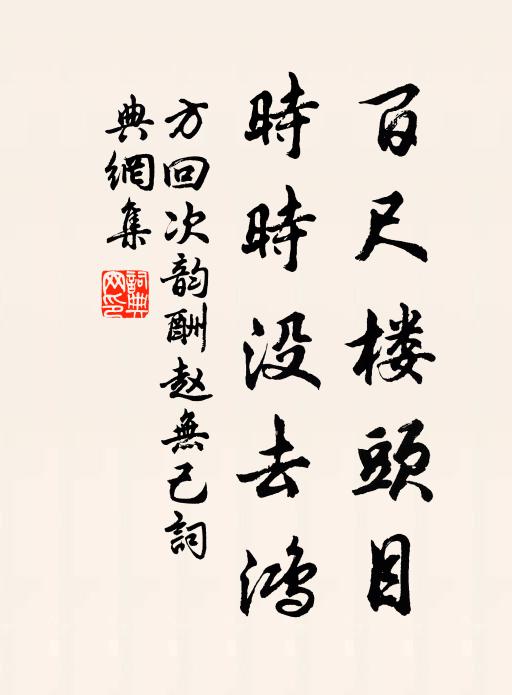 百尺楼頭目
時時没去鴻
方回次韵酬赵無己詞
典網集
詞典網印